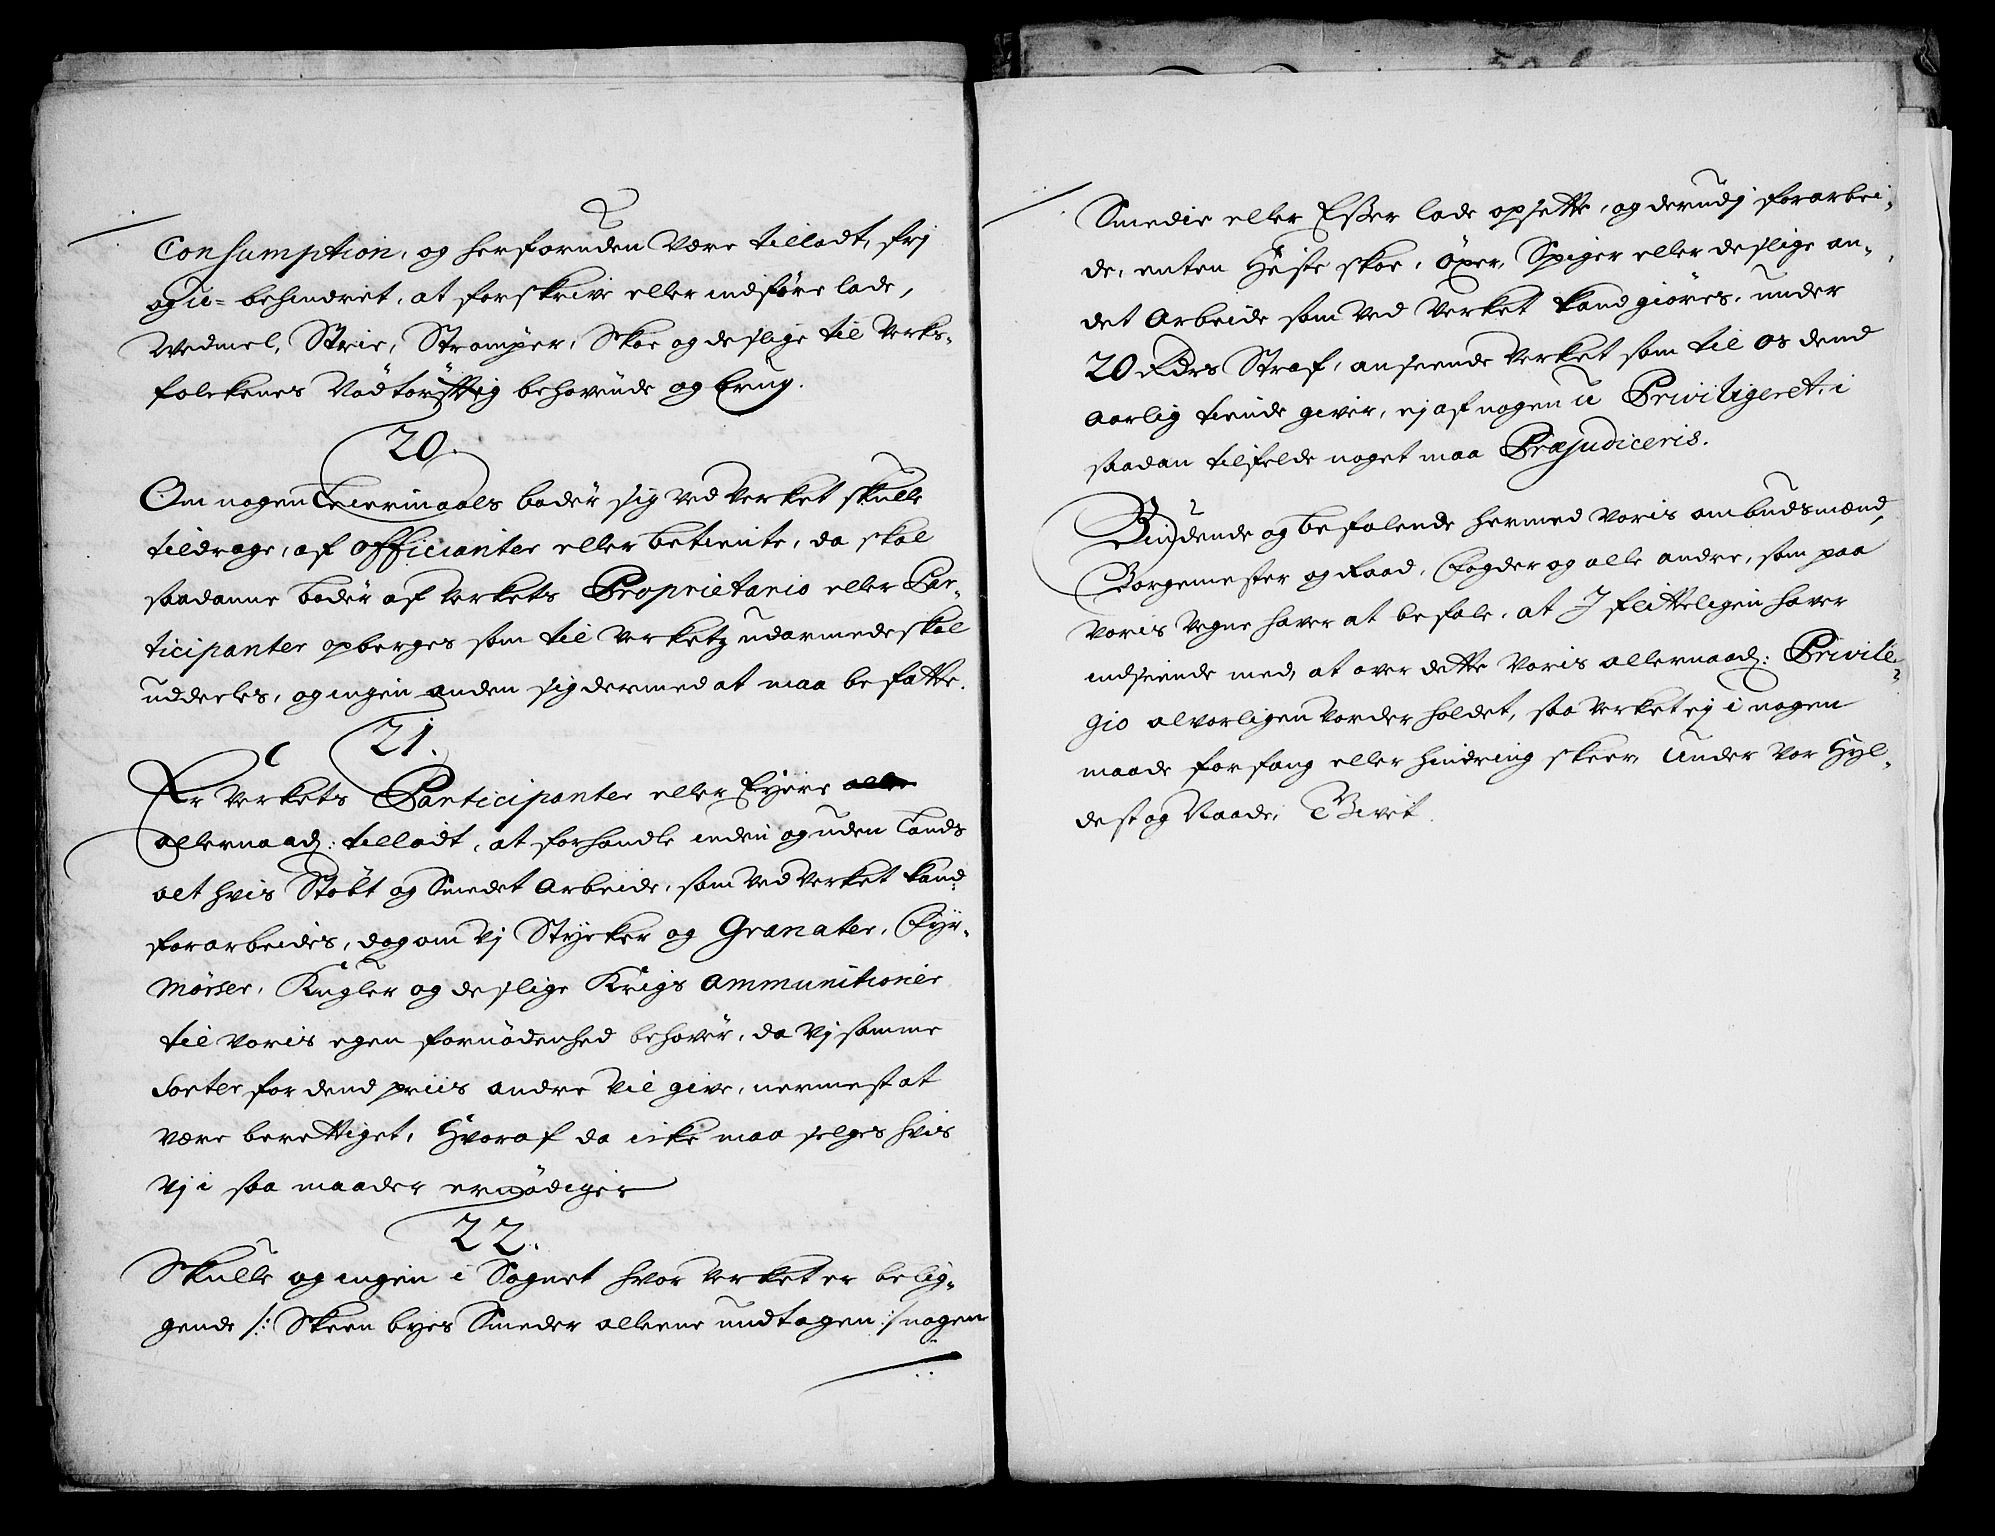 Consumption, og herforuden være tilladt, frj
og u=behindret, at forskrive eller indføre lade,
Wedmel, Strie, Strømper, Skoe og deslige til Verks-
folckenes Nødtørfftig behovende og brug.
20.
Om nogen Leiermaals bøder sig ved Verket skulle
tildrage, af Officianter eller betiente, da skal
saadanne bøder af Verkets Proprietario eller Par-
ticipanter opberges som til Verketz udarmede skal
uddeeles, og ingen anden sig dermed at maa befatte.
21.
Er Verkets Participanter eller Eyere
allernaad: tilladt, at forhandle inden og uden Lands
alt hvis Støbt og Smedet Arbeide, som ved Verket kand
forarbeides, dog om Vj Stycker og Granater, Fyr-
Mørser, Kugler og deslige Krigs Ammunitioner
til Voris egen fornødenhed behøver, da Vj samme
Sorter for dend priis andre vil give, nermest at
være berettiget, Hvoraf da icke maa selges hvis
Vj i saa maader ernødiger
22.
Skulle og ingen i Sognet hvor Verket er belig-
gende /: Skeen byes Smeder alleene undtagen :/ nogen
Smedie eller Eßer lade opsette, og derudj forarbei-
de, enten Heste skoe, Øxer, Spiger eller deslige an-
det Arbeide som ved Verket kand giøres, under
20 Rdrs Straf, anseende Verket som til os dend
aarlig tiende giver, ej af nogen u Priviligeret, i
saadan tilfelde noget maa Præjudiceris.
Biudende og befalende hermed Voris ombudsmænd,
Borgemester og Raad, Fogder og alle andre, som paa
Voris Vegne haver at befale, at I flitteligen haver
indseende med, at over dette Voris allernaad: Privile-
gio alvorligen vorder holdet, saa Verket ej i nogen
maade forfang eller hindring skeer, Under Vor Hyl-
dest og Naade, Givet